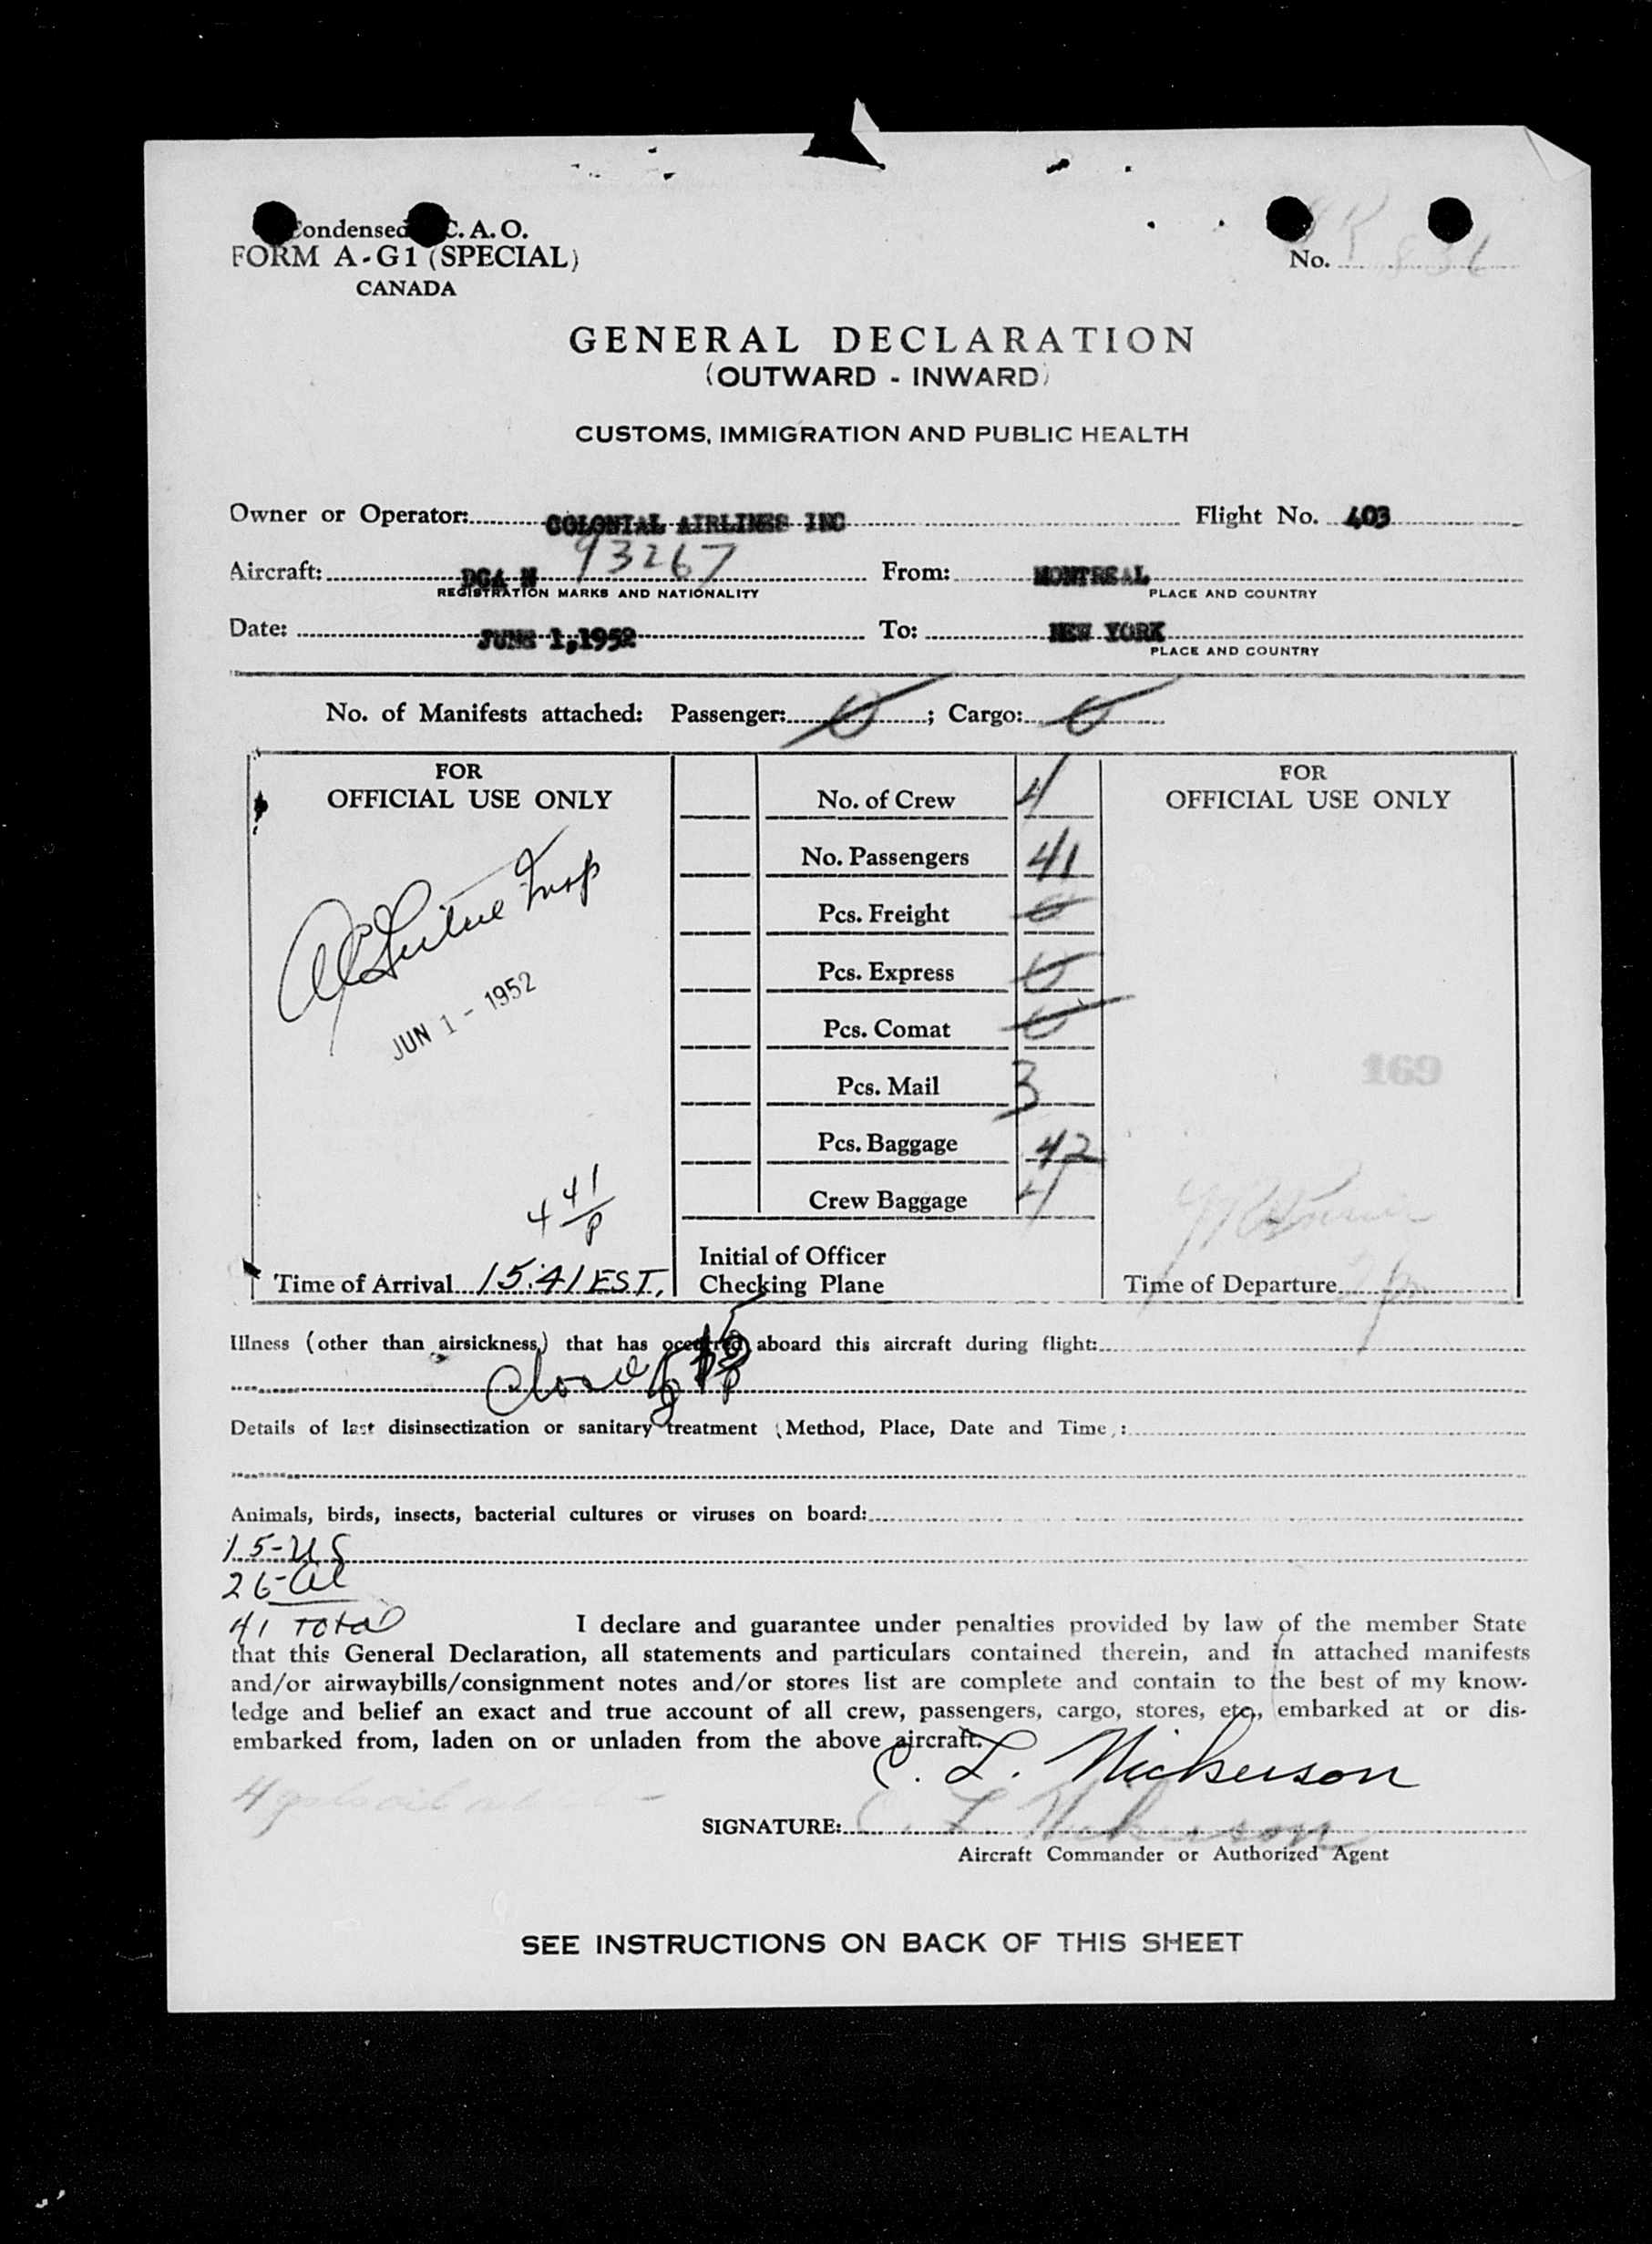 Condensed C. A. O.
FORM A-G1 (SPECIAL)
CANADA
No. 836
GENERAL DECLARATION
(OUTWARD - INWARD)
CUSTOMS, IMMIGRATION AND PUBLIC HEALTH
Owner or Operator: COLONIAL AIRLINES INC Flight No. 403
Aircraft: DC4 N 93267 From: MONTREAL
REGISTRATION MARKS AND NATIONALITY PLACE AND COUNTRY
Date: JUNE 1,1952 To: NEW YORK
PLACE AND COUNTRY
No. of Manifests attached: Passenger: 0; Cargo: 0
FOR
OFFICIAL USE ONLY
Insp
JUN 1 - 1952
4 41/P
Time of Arrival 15:41 EST,
No. of Crew 4
No. Passengers 41
Pcs. Freight 0
Pcs. Express 0
Pcs. Comat 0
Pcs. Mail 3
Pcs. Baggage 42
Crew Baggage 4
Initial of Officer
Checking Plane
FOR
OFFICIAL USE ONLY
169
Time of Departure
Illness (other than airsickness) that has occurred aboard this aircraft during flight:
Closed
Details of last disinsectization or sanitary treatment (Method, Place, Date and Time):
Animals, birds, insects, bacterial cultures or viruses on board:
15-US
26-al
41 Total
I declare and guarantee under penalties provided by law of the member State
that this General Declaration, all statements and particulars contained therein, and in attached manifests
and/or airwaybills/consignment notes and/or stores list are complete and contain to the best of my know-
ledge and belief an exact and true account of all crew, passengers, cargo, stores, etc., embarked at or dis-
embarked from, laden on or unladen from the above aircraft.
C. L. Nickerson
SIGNATURE: C. L. Nickerson
Aircraft Commander or Authorized Agent
SEE INSTRUCTIONS ON BACK OF THIS SHEET